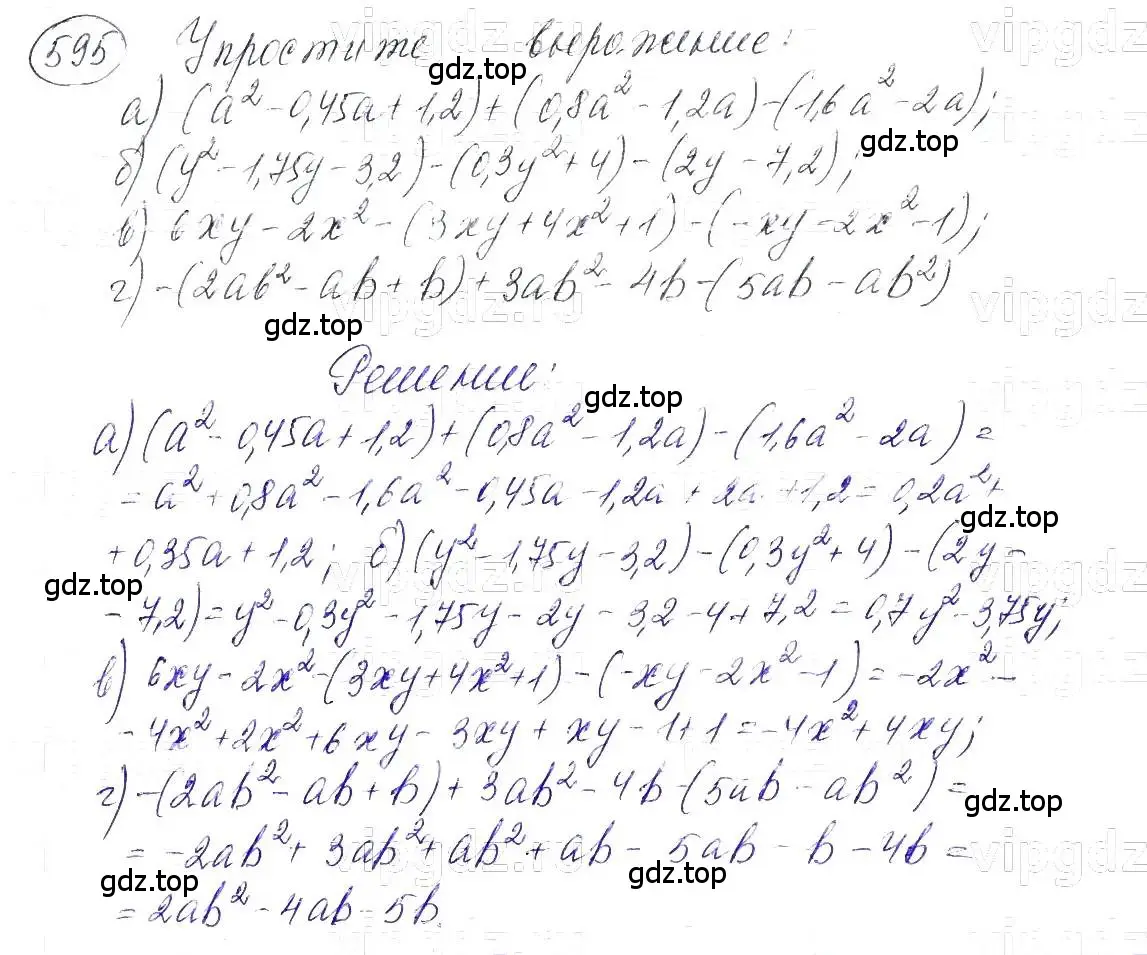 595 Упростите выражение:
а) (a² - 0,45a + 1,2) + (0,8a² - 1,2a) - (1,6a² - 2a);
б) (y² - 1,75y - 3,2) - (0,3y² + 4) - (2y - 7,2);
в) 6xy - 2x² - (3xy + 4x² + 1) - (-xy - 2x² - 1);
г) -(2ab² - ab + b) + 3ab² - 4b - (5ab - ab²)
Решение:
а) (a² - 0,45a + 1,2) + (0,8a² - 1,2a) - (1,6a² - 2a) =
= a² + 0,8a² - 1,6a² - 0,45a - 1,2a + 2a + 1,2 = 0,2a² +
+ 0,35a + 1,2; б) (y² - 1,75y - 3,2) - (0,3y² + 4) - (2y -
- 7,2) = y² - 0,3y² - 1,75y - 2y - 3,2 - 4 + 7,2 = 0,7y² - 3,75y;
в) 6xy - 2x² - (3xy + 4x² + 1) - (-xy - 2x² - 1) = -2x² -
- 4x² + 2x² + 6xy - 3xy + xy - 1 + 1 = -4x² + 4xy;
г) -(2ab² - ab + b) + 3ab² - 4b - (5ab - ab²) =
= -2ab² + 3ab² + ab² + ab - 5ab - b - 4b =
= 2ab² - 4ab - 5b
gdz.top
gdz.top
gdz.top
gdz.top
gdz.top
gdz.top
gdz.top
gdz.top
gdz.top